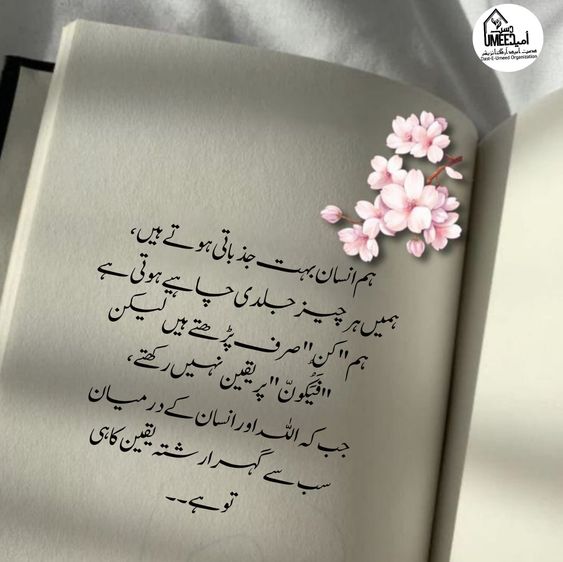 دست
امید
UMEED
Dast-E-Umeed Organization
ہم انسان بہت جذباتی ہوتے ہیں،
ہمیں ہر چیز جلدی چاہیے ہوتی ہے
ہم "کن" صرف پڑھتے ہیں لیکن
"فَيَكُونُ" پر یقین نہیں رکھتے،
جب کہ اللہ اور انسان کے درمیان
سب سے گہرا رشتہ یقین کا ہی
تو ہے۔۔